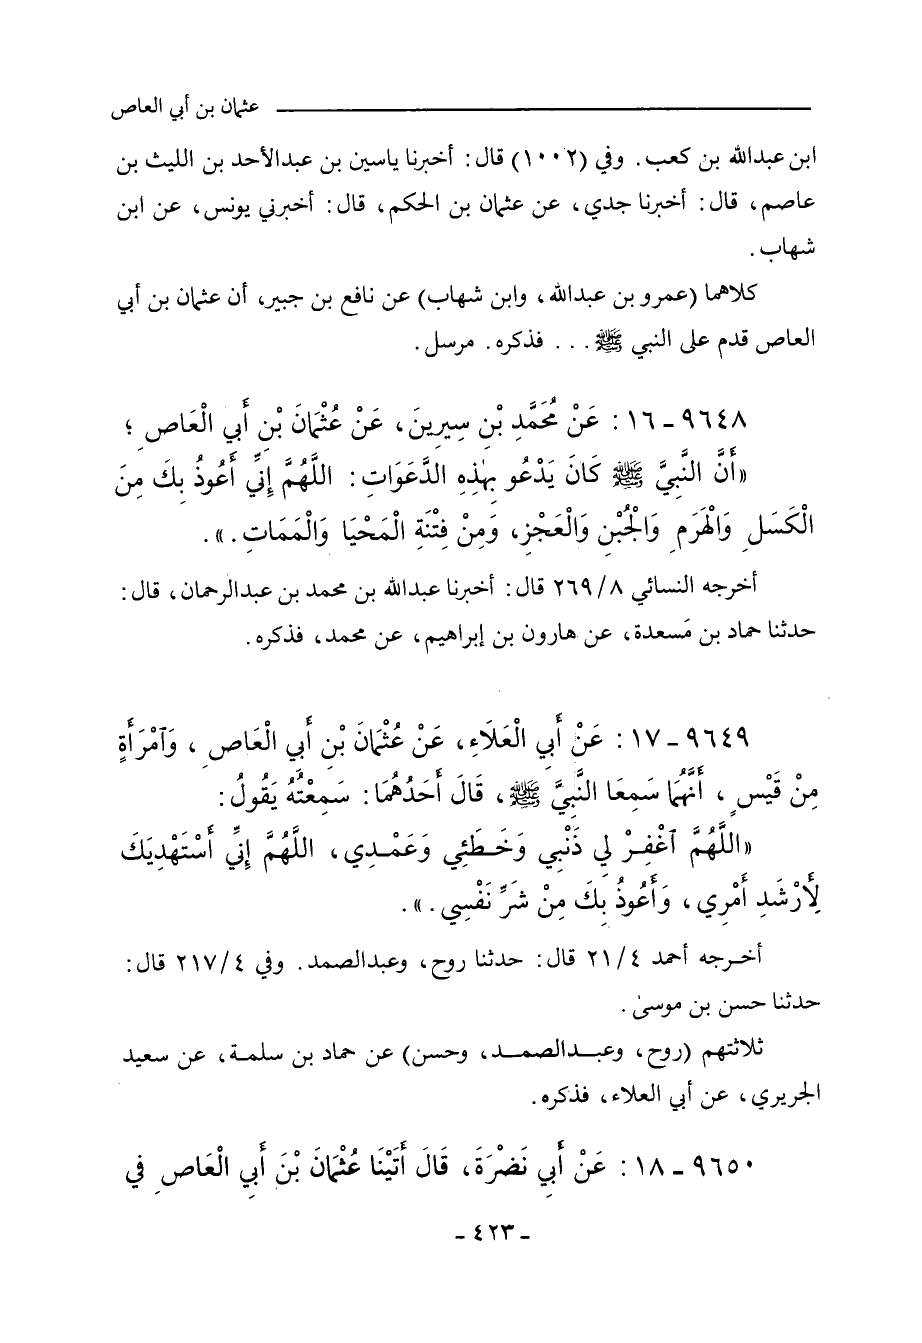 عثمان بن أبي العاص
ابن عبدالله بن كعب. وفي (١٠٠٢) قال: أخبرنا ياسين بن عبدالأحد بن الليث بن
عاصم، قال: أخبرنا جدي، عن عثمان بن الحكم، قال: أخبرني يونس، عن ابن
شهاب.
كلاهما (عمرو بن عبدالله، وابن شهاب) عن نافع بن جبير، أن عثمان بن أبي
العاص قدم على النبي ﷺ . . . فذكره. مرسل.
٩٦٤٨ - ١٦: عَنْ مُحَمَّدِ بْنِ سِيرِينَ، عَنْ عُثْمَانَ بْنِ أَبِي الْعَاصِ؛
«أَنَّ النَّبِيَّ ﷺ كَانَ يَدْعُو بِهٰذِهِ الدَّعَوَاتِ: اللَّهُمَّ إِنِّي أَعُوذُ بِكَ مِنَ
الْكَسَلِ وَالْهَرَمِ وَالْجُبْنِ وَالْعَجْزِ، وَمِنْ فِتْنَةِ الْمَحْيَا وَالْمَمَاتِ.».
أخرجه النسائي ٢٦٩/٨ قال: أخبرنا عبدالله بن محمد بن عبدالرحمان، قال:
حدثنا حماد بن مَسعدة، عن هارون بن إبراهيم، عن محمد، فذكره.
٩٦٤٩ - ١٧: عَنْ أَبِي الْعَلَاءِ، عَنْ عُثْمَانَ بْنِ أَبِي الْعَاصِ، وَٱمْرَأَةٍ
مِنْ قَيْسٍ، أَنَّهُمَا سَمِعَا النَّبِيَّ ﷺ، قَالَ أَحَدُهُمَا: سَمِعْتُهُ يَقُولُ:
«اللَّهُمَّ ٱغْفِرْ لِي ذَنْبِي وَخَطَئِي وَعَمْدِي، اللَّهُمَّ إِنِّي أَسْتَهْدِيكَ
لِأَرْشَدِ أَمْرِي، وَأَعُوذُ بِكَ مِنْ شَرِّ نَفْسِي.».
أخرجه أحمد ٢١/٤ قال: حدثنا روح، وعبدالصمد. وفي ٢١٧/٤ قال:
حدثنا حسن بن موسىٰ.
ثلاثتهم (روح، وعبدالصمد، وحسن) عن حماد بن سلمة، عن سعيد
الجريري، عن أبي العلاء، فذكره.
٩٦٥٠ - ١٨: عَنْ أَبِي نَضْرَةَ، قَالَ أَتَيْنَا عُثْمَانَ بْنَ أَبِي الْعَاصِ فِي
- ٤٢٣ -